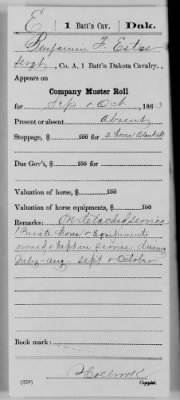 E | 1 Batt'n Cav. | Dak.
Benjamin F. Estes
Sergt, Co. A, 1 Batt'n Dakota Cavalry.
Appears on
Company Muster Roll
for Sept & Oct, 1863
Present or absent Absent
Stoppage, $ 100 for 2 horse Blankets
Due Gov't, $ 100 for
Valuation of horse, $ 100
Valuation of horse equipments, $ 100
Remarks: On detached service
1 Private horse & Equipments
owned & kept in service during
July - Aug - Sept & October
Book mark:
Holbrook
(358) Copyist.